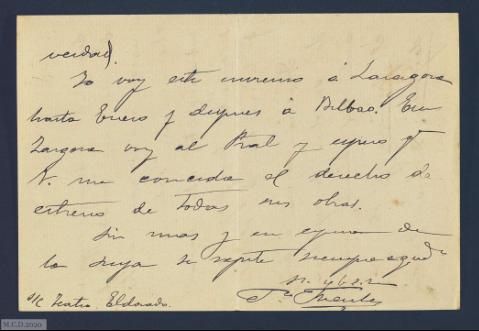 verdad).
Yo voy este invierno á Zaragoza
hasta Enero y despues á Bilbao. En
Zaragoza voy al Pral y espero qe
V. me conceda el derecho de
estreno de todas sus obras.
Sin mas y en espera de
la suya se repite siempre
Fco Fuentes
s/c Teatro Eldorado.
M.C.D. 2020